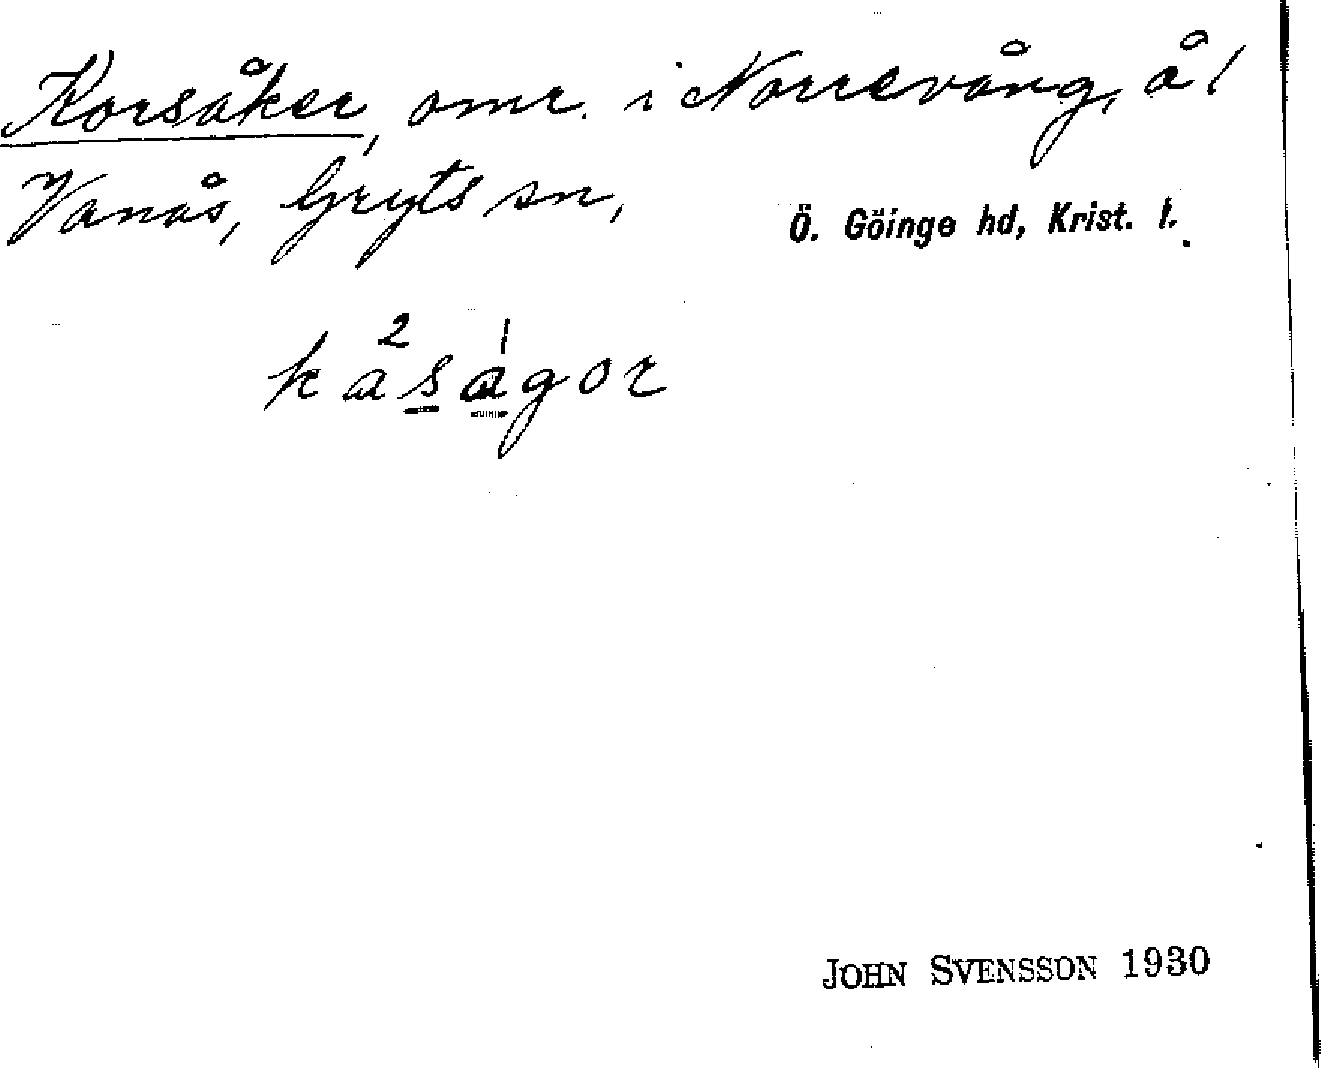 Korsåker, omr. i Norrevång, å/
Vanås, Gryts sn, Ö. Göinge hd, Krist. l.
ka²sa¹gor
JOHN SVENSSON 1930